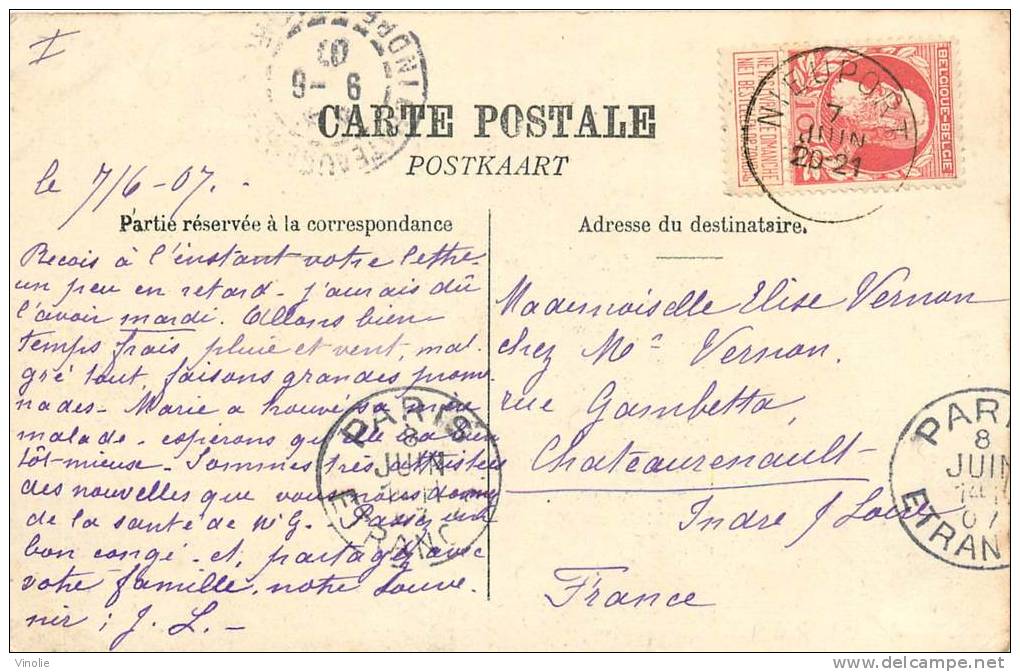 I
INDRE
9-6
07
CARTE POSTALE
POSTKAART
NIEUPORT
7
JUIN
20-21
BELGIQUE-BELGIË
10
le 7/6-07.
Partie réservée à la correspondance
Adresse du destinataire.
Recois à l'instant votre lettre
un peu en retard - j'aurais dû
l'avoir mardi. Allons bien
temps frais pluie et vent, mal
gré tout, faisons grandes prome
nades - Marie a trouvé sa mère
malade - espérons qu'elle ira bien
tôt mieux - Sommes très attristés
des nouvelles que vous nous donnez
de la santé de Mr G. Passez un
bon congé - et, partagez avec
votre famille, notre souve-
nir ; J. L. -
Mademoiselle Elise Vernon
chez Mr Vernon.
rue Gambetta
Chateaurenault -
Indre / Loire
France
PARIS
8
JUIN
07
ETRANG
PARI
8
JUIN
07
ETRAN
Vinolie
http://www.delcampe.net